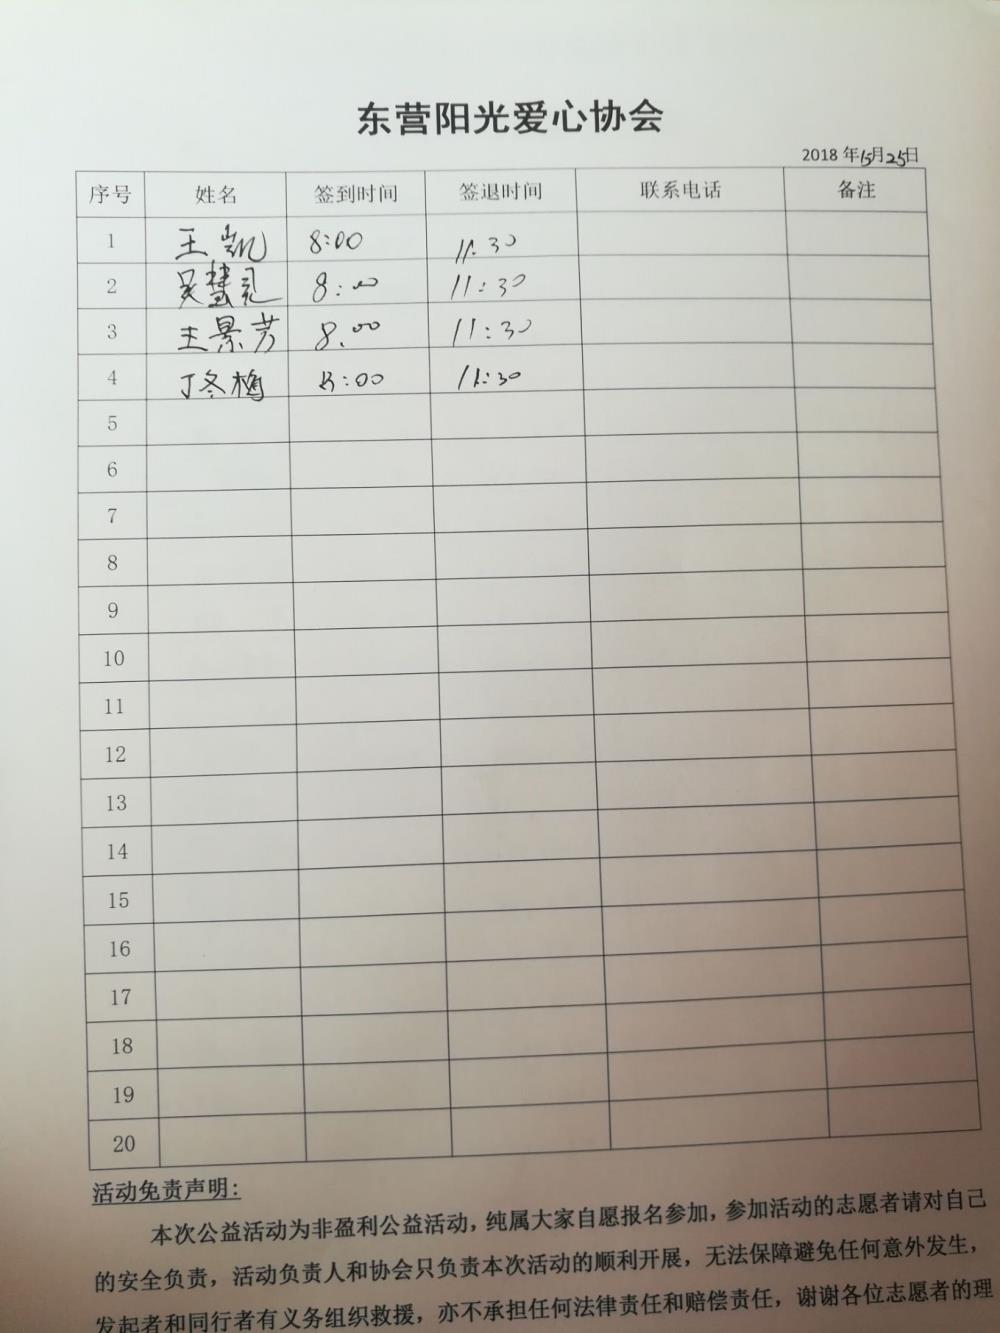 东营阳光爱心协会
2018 年5月25日
序号 姓名 签到时间 签退时间 联系电话 备注
1 王凯 8:00 11:30
2 吴慧 8:00 11:30
3 王景芳 8:00 11:30
4 丁冬梅 8:00 11:30
5
6
7
8
9
10
11
12
13
14
15
16
17
18
19
20
活动免责声明:
本次公益活动为非盈利公益活动，纯属大家自愿报名参加，参加活动的志愿者请对自己
的安全负责，活动负责人和协会只负责本次活动的顺利开展，无法保障避免任何意外发生，
发起者和同行者有义务组织救援，亦不承担任何法律责任和赔偿责任，谢谢各位志愿者的理